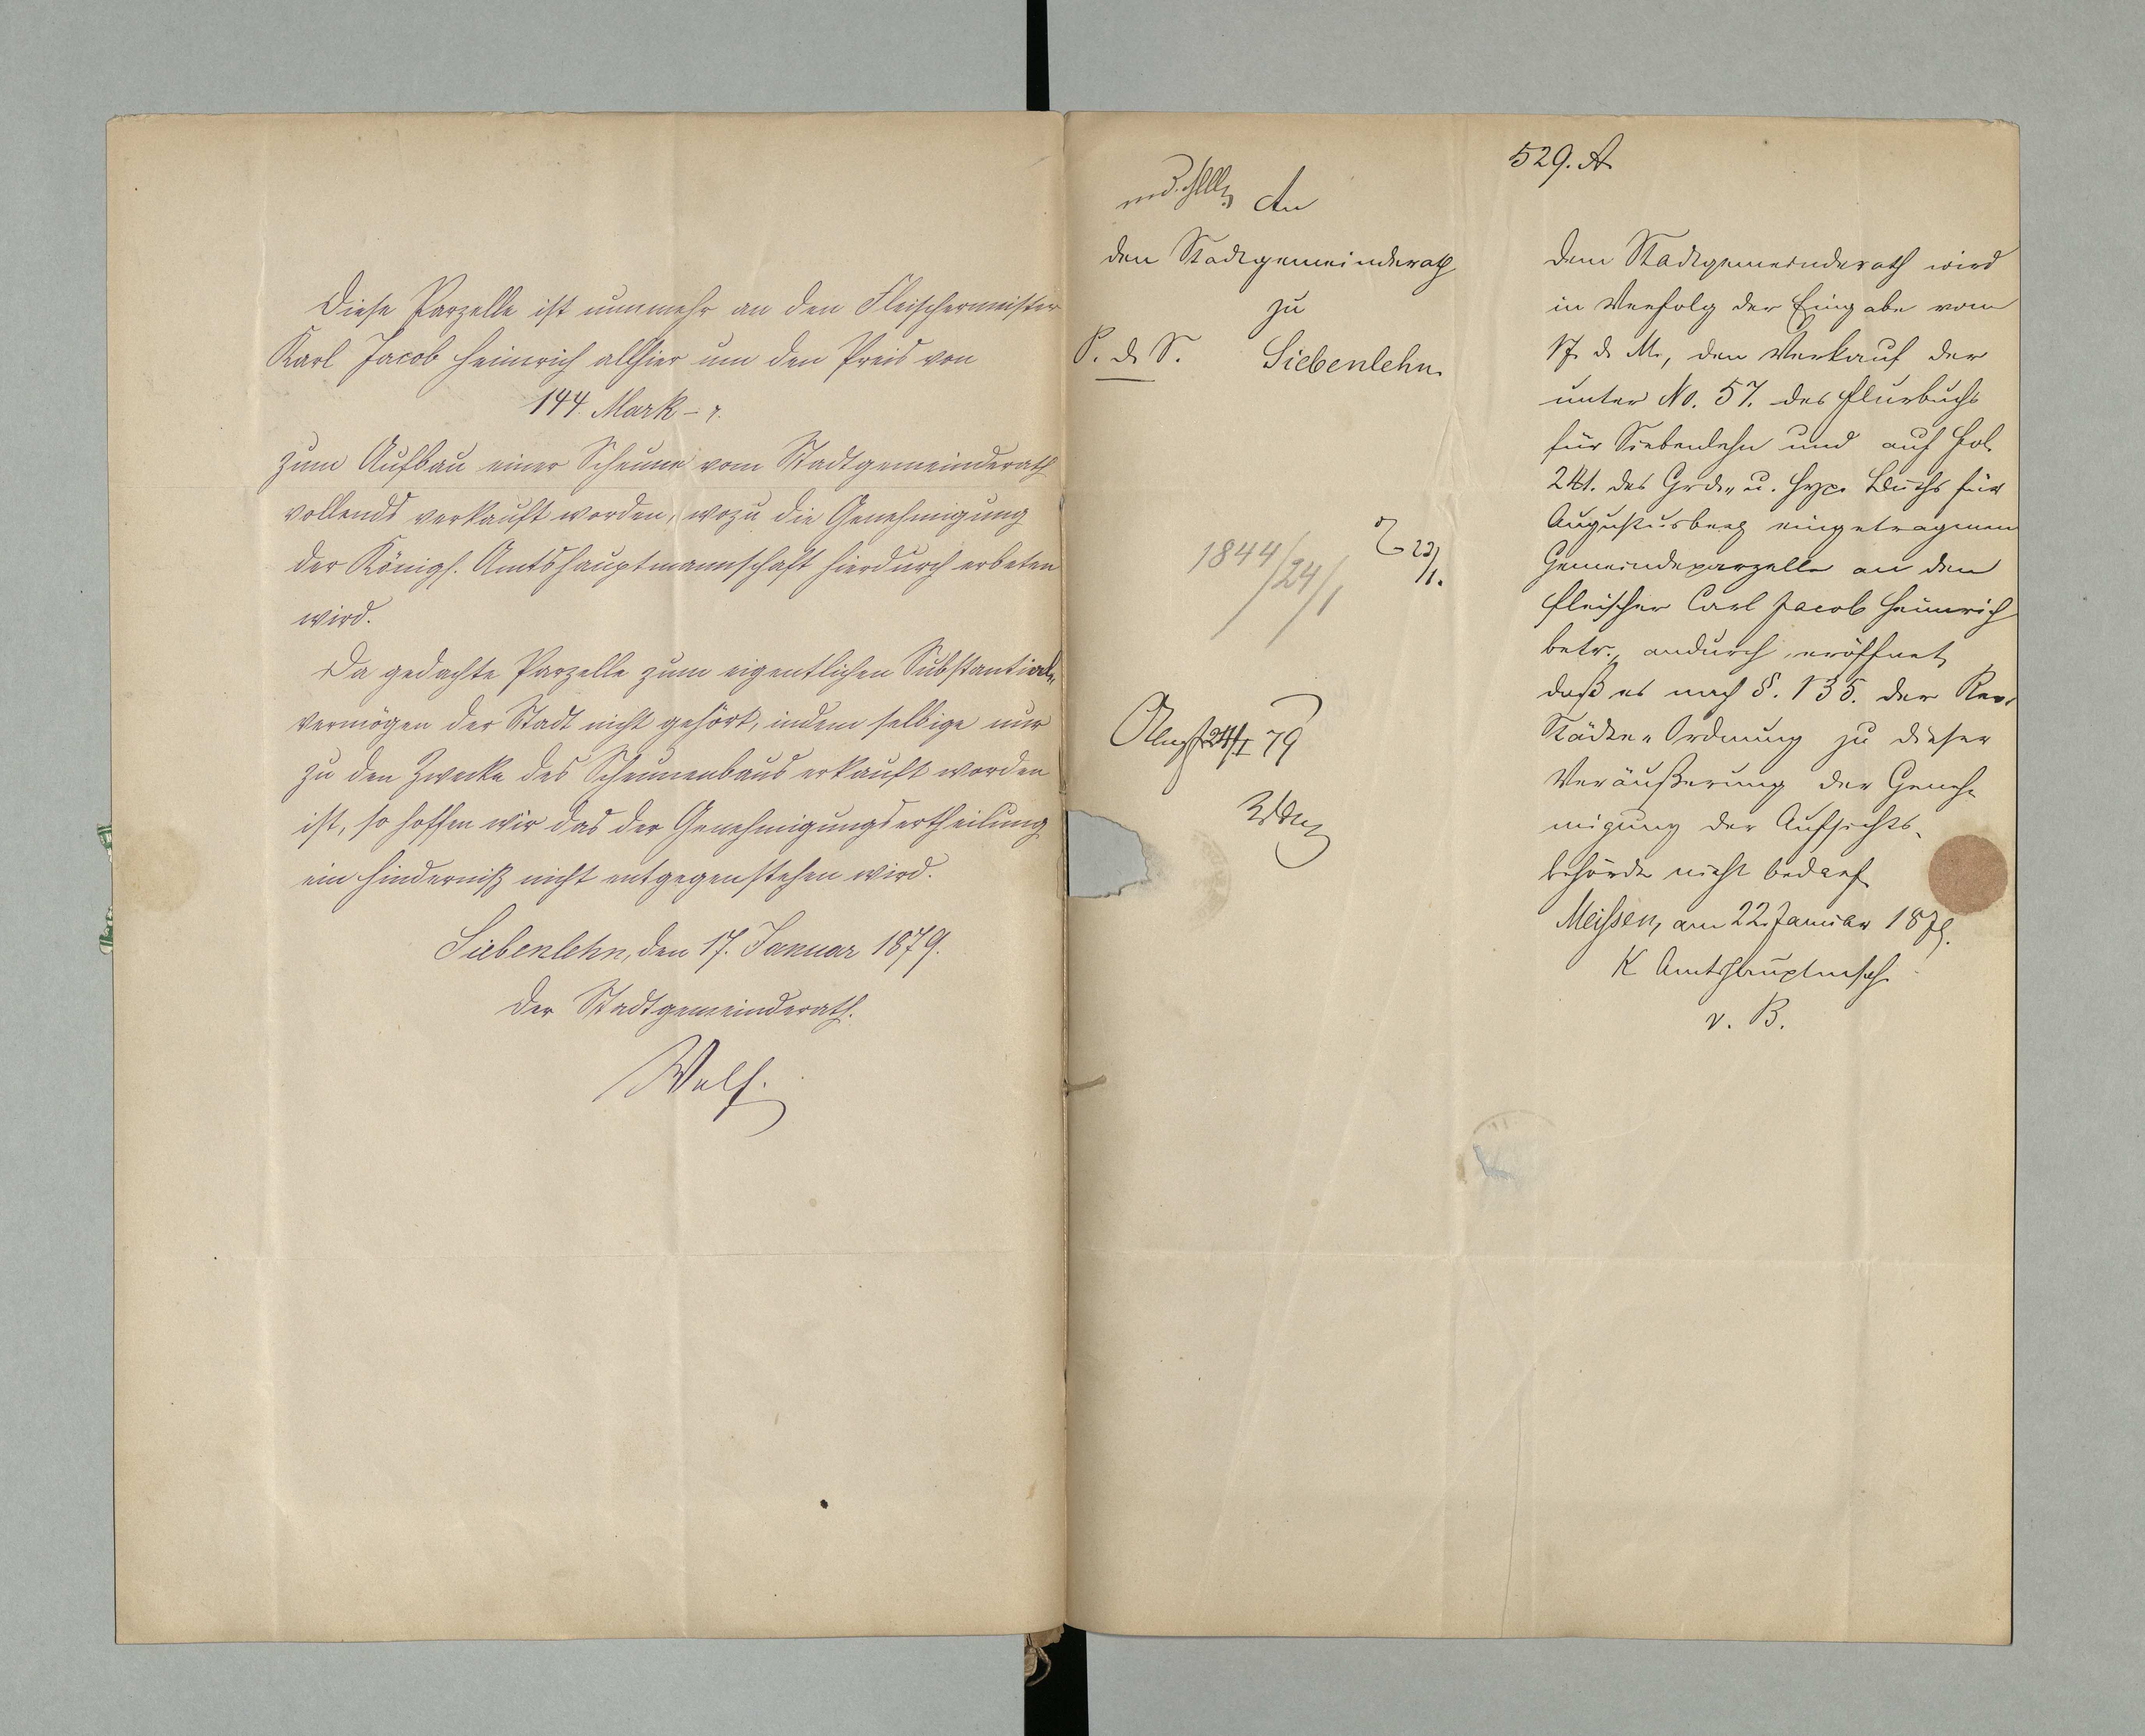 Diese Parzelle ist nunmehr an den Fleischermeister
Karl Jacob Heinrich allhier um den Preis von
144. Mark -
zum Aufbau einer Scheune vom Stadtgemeinderath
vollends verkauft worden, wozu die Genehmigung
der Königl. Amtshauptmannschaft hierdurch erbeten
wird.
Da gedachte Parzelle zum eigentlichen Substantial„
vermögen der Stadt nicht gehört, indem selbige nur
zu den Zwecke des Scheunenbaus erkauft worden
ist, so hoffen wir das der Genehmigungsertheilung
ein Hinderniß nicht entgegenstehen wird.
Siebenlehn, den 17. Januar 1879.
Der Stadtgemeinderath.
Wolf.
An
den Stadtgemeinderath
zu
P. d. S. Siebenlehn.
23/1.
1844/24/1
24/I 79
529. A.
Dem Stadtgemeinderath wird
in Verfolg der Eingabe vom
17. d. M., den Verkauf der
unter No. 57. des Flurbuchs
für Siebenlehn und auf Fol.
241. des Grd„ u. Hyp. Buchs für
Augustusberg eingetragenen
Gemeindeparzelle an den
Fleischer Carl Jacob Heinrich
betr., andurch eröffnet,
daß es nach §. 135. der Rev.
Städte„Ordnung zu dieser
Veräußerung der Geneh„
migung der Aufsichts„
behörde nicht bedarf.
Meissen, am 22. Januar 1879.
K Amtshauptmsch.
v. B.